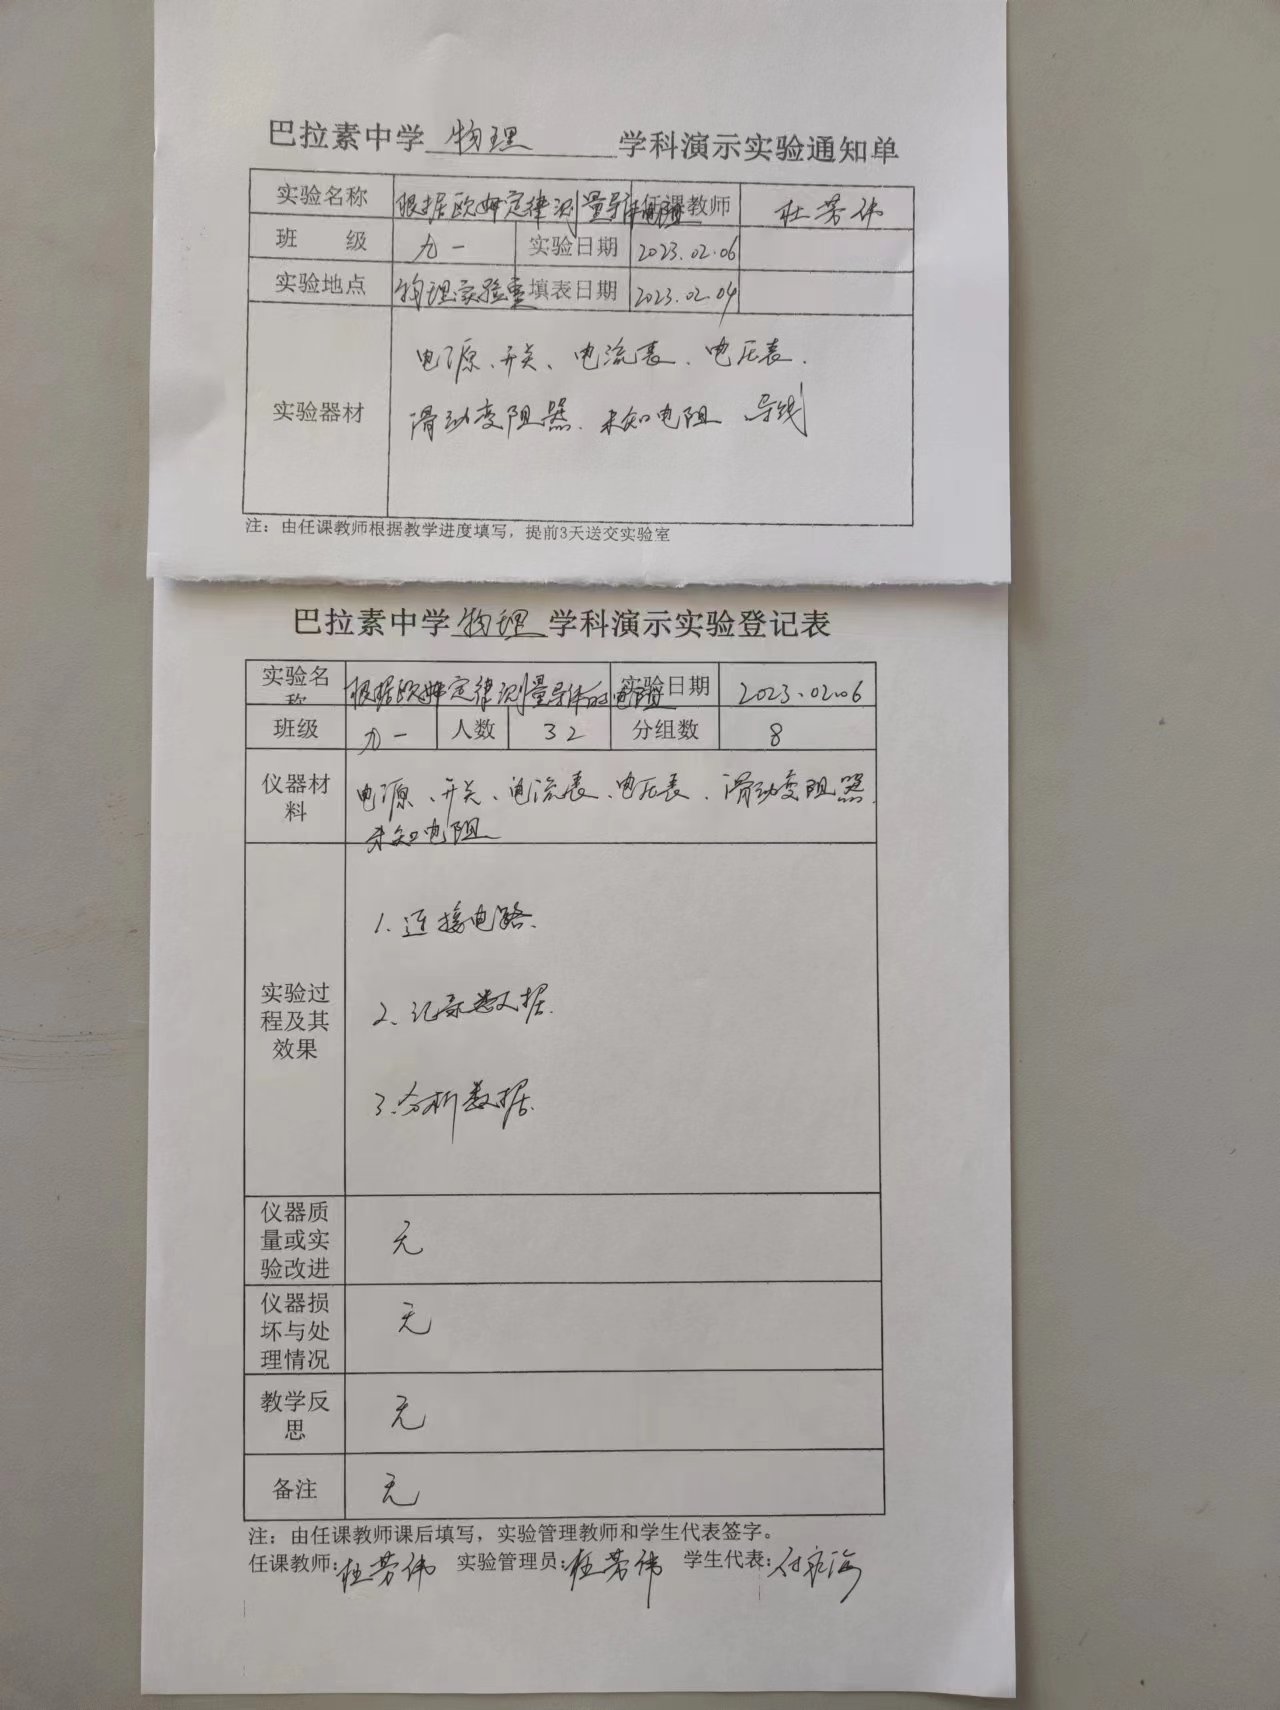 巴拉素中学 物理 学科演示实验通知单
实验名称 根据欧姆定律测量导体电阻 任课教师 杜芳伟
班 级 九一 实验日期 2023.02.06
实验地点 物理实验室 填表日期 2023.02.04
电源、开关、电流表、电压表、
实验器材
滑动变阻器、未知电阻 导线
注：由任课教师根据教学进度填写，提前3天送交实验室
巴拉素中学 物理 学科演示实验登记表
实验名称 根据欧姆定律测量导体的电阻 实验日期 2023.02.06
班级 九一 人数 32 分组数 8
仪器材料 电源、开关、电流表、电压表、滑动变阻器、
未知电阻
1.连接电路.
实验过程及其效果
2.记录数据.
3.分析数据.
仪器质量或实验改进 无
仪器损坏与处理情况 无
教学反思 无
备注 无
注：由任课教师课后填写，实验管理教师和学生代表签字。
任课教师:杜芳伟 实验管理员:杜芳伟 学生代表: